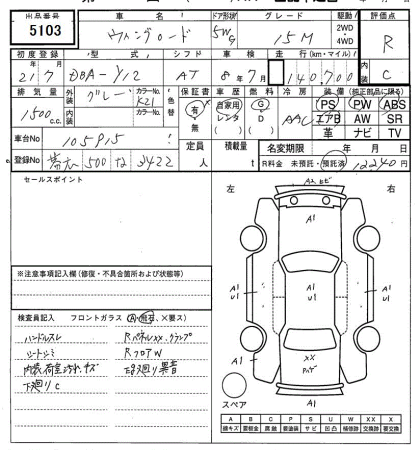 出品番号 車名 ドア形状 グレード 駆動 評価点
5103 ウィングロード 5W 15M 2WD 4WD R
初度登録 型式 シフト 車検 走行(km・マイル) 内装
21年7月 DBA-Y12 AT 8年7月 140,700 C
排気量 外装 グレー カラーNo. K21 色替 保証書 車歴 燃料 冷房 装備(純正部品に限る)
1500c.c. 内装 カラーNo. 有・無 自家用 レンタ G D AAC PS PW ABS
エアB AW SR
革 ナビ TV
車台No 105915
定員 人 積載量 t 名変期限 年 月 日
登録No 帯広 500 な 3422
R料金 未預託・預託済 12240円
セールスポイント
左 右
A1
A1
U1
A1
U1
A1
U1
A1
XX
A1
スペア
※注意事項記入欄(修復・不具合箇所および状態等)
検査員記入 フロントガラス (A・飛石、×要ス)
ハンドルスレ RパネルXX、クランプ
シートシミ RフロアW
内装、荷室汚れ、キズ 下回り異音
下廻りC
A B C P S U W XX X
線キズ 重板金 腐蝕 要塗装 サビ 凹凸 補修跡 交換跡 要交換